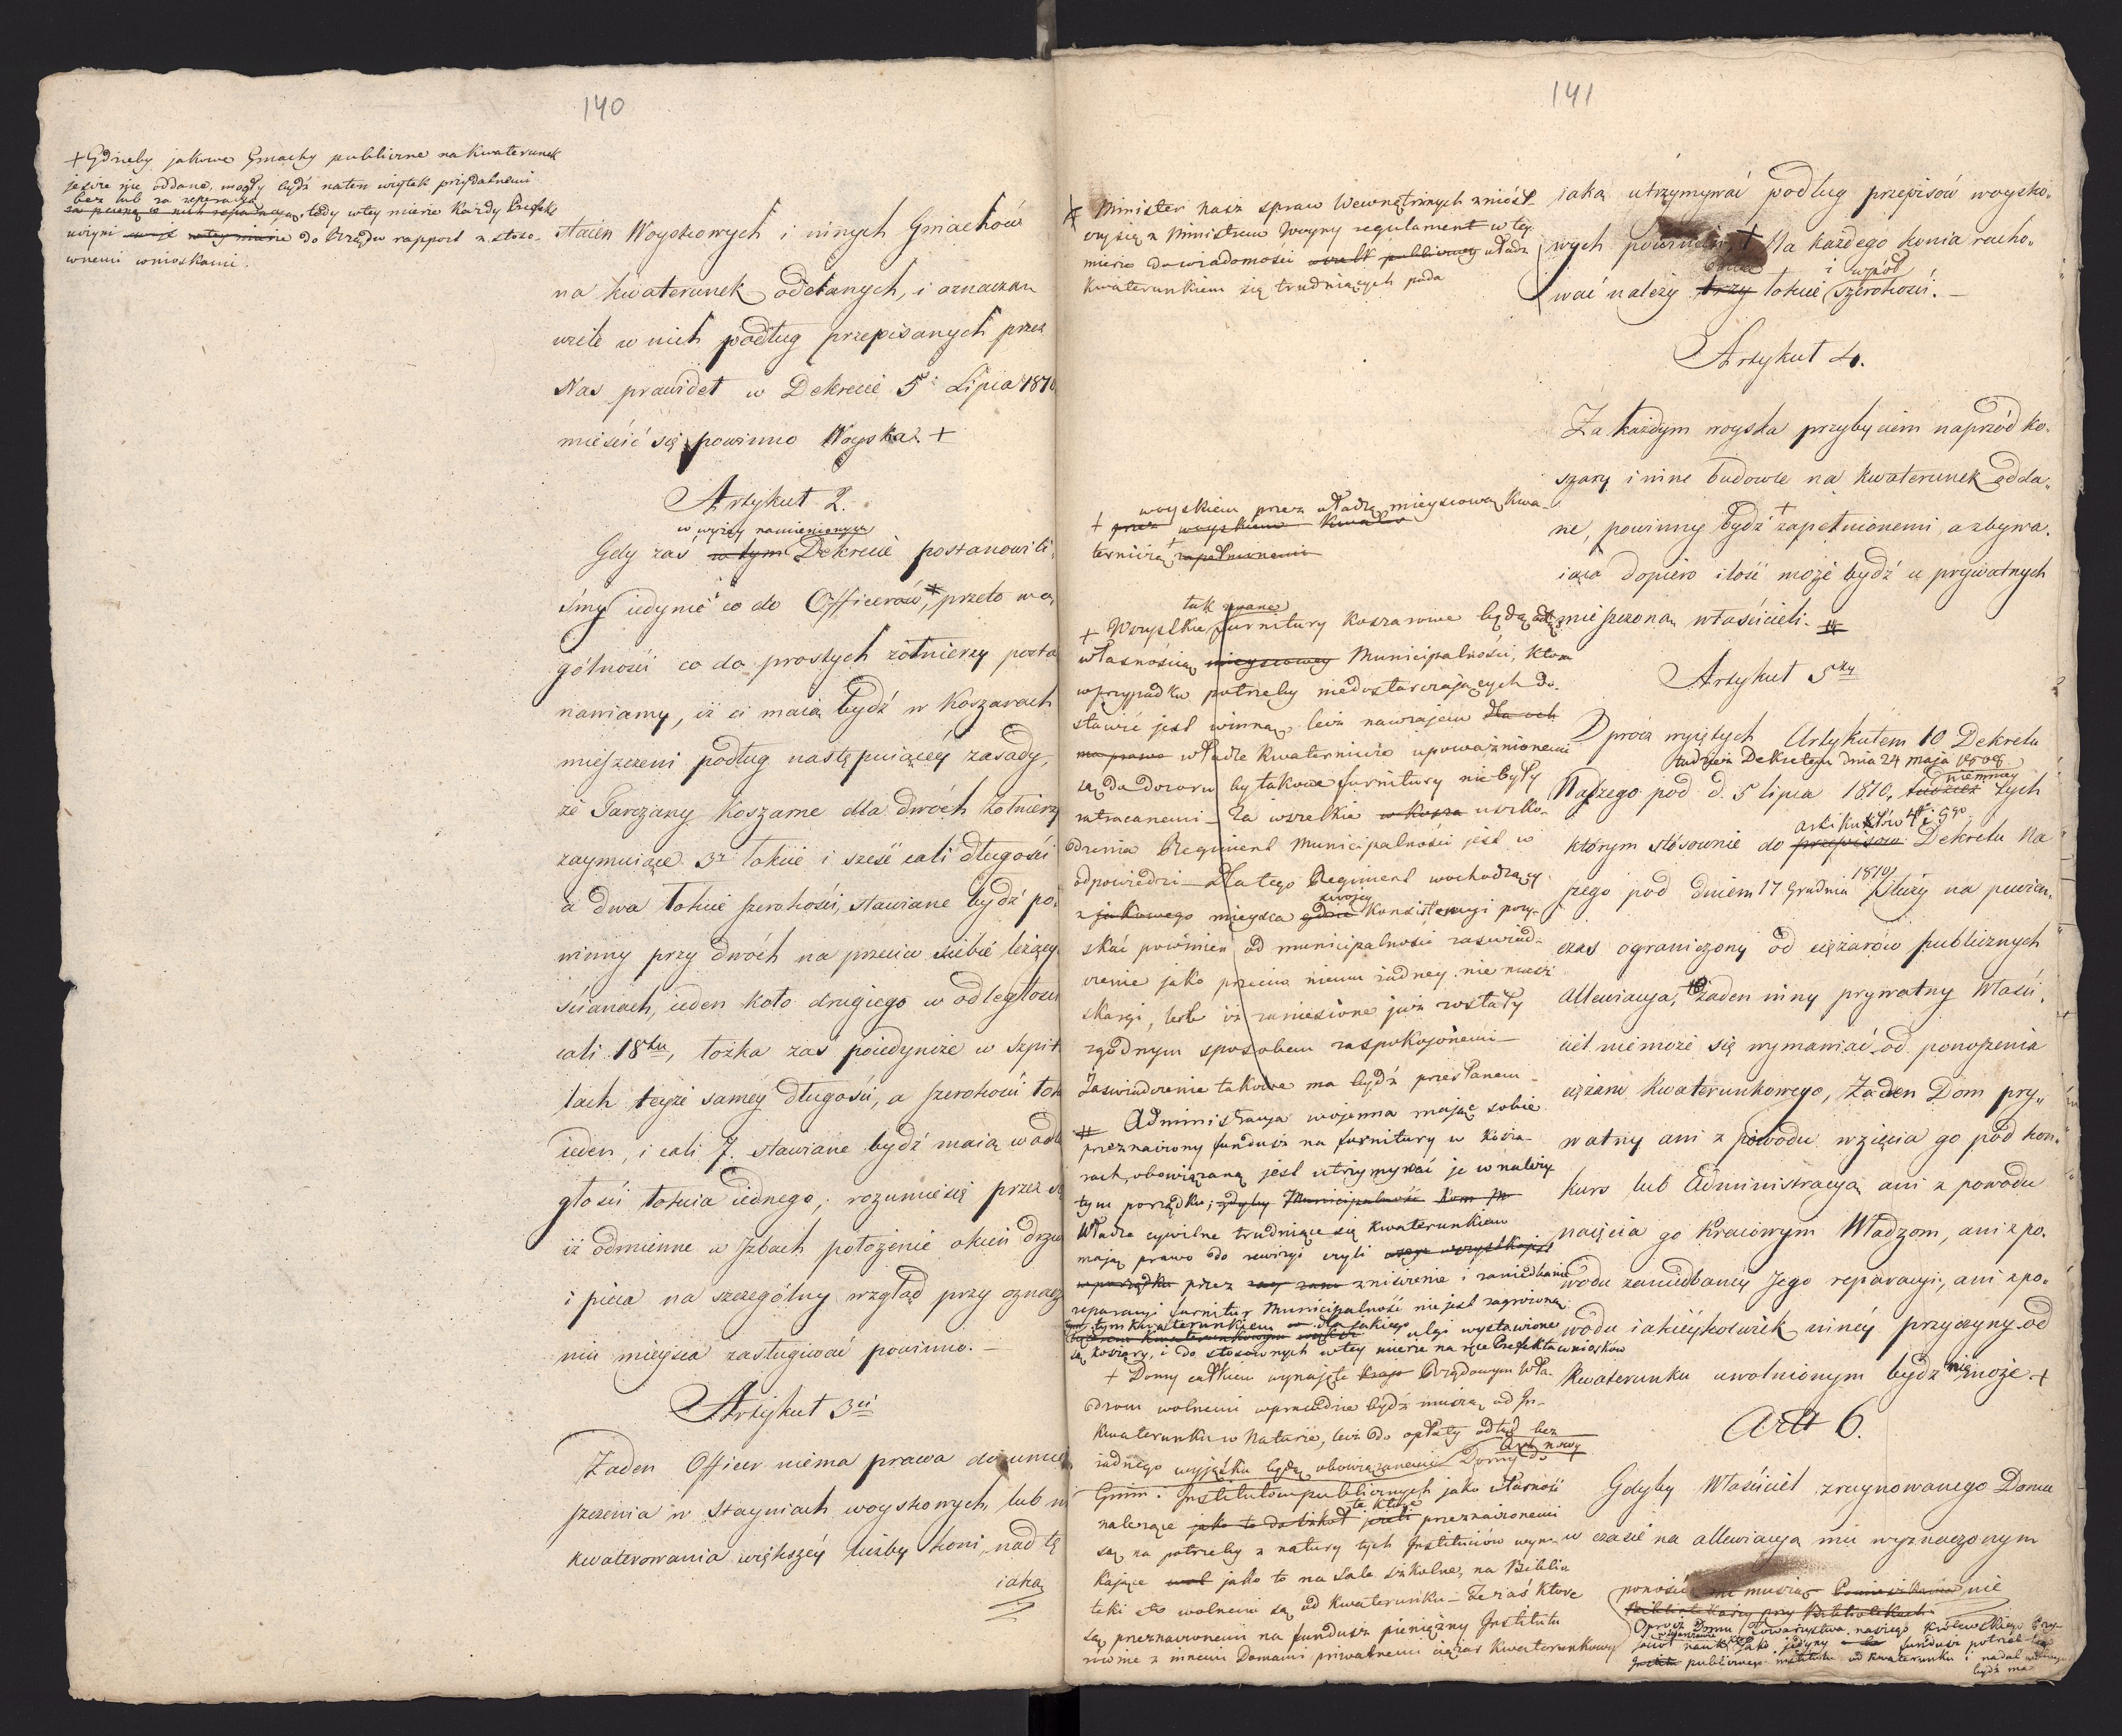 140
+ Gdzieby jakowe Gmachy publiczne na Kwaterunek
jeszcze nie oddane, mogły bydź na ten użytek przydatnemi
bez lub za reperacyą
tedy w tey mierze Każdy Prefekt
uczyni do Rządu rapport z stoso-
wnemi wnioskami.
stáien Woyskowych i innych Gmachów
na kwaterunek oddanych, i oznaczan
wiele w nich podług przepisanych przez
Nas prawideł w Dekrecie 5. Lipca 1810
mieścić się powinno Woyska. +
Artykuł 2.
w wyżey namienionym
Gdy zaś w tym Dekrecie postanowili
śmy iedynie co do Officerów, przeto w o,
gólności co do prostych żołnierzy posta
nawiamy, iż ci maią bydź w Koszarach
mieszczeni podług następuiącey zasady,
że Tarczany Koszarne dla dwóch Żołnierzy
zaymuiące 3 łokcie i sześć cali długości
a dwa łokcie szerokości, stawiane bydź po,
winny przy dwóch na przeciw siebie leżący
ścianach, ieden koło drugiego w odległości
cali 18tu, łożka zaś poiedyncze w Szpit
lach teyże samey długości, a szerokości łok
ieden, i cali 7. stawiane bydź maią w odle
głości łokcia iednego; rozumie się przez się
iż odmienne w Izbach położenie okien drzwi
i pieca na szczególny wzgląd przy oznacz
niu mieysca zasługiwać powinno. —
Artykuł 3ci
Żaden Officer niema prawa do umie
szczenia w Stayniach woyskowych, lub w
kwaterowania większey liczby koni, nad tę
iaką
141
Minister Nasz spraw Wewnętrznych zniósł-
szy się z Ministrem Woyny regulament w tey
mierze do wiadomości władz
Kwaterunkiem się trudniących poda
woyskiem przez władzę mieyscową Kwa-
+ przez woyskiem
terniczą zapełnionemi
tak zwane
+ Wszystkie furnitury Koszarowe będą odtąd
własnością mieyscowey Municipalności, która
w przypadku potrzeby niedostarczających do-
stawić jest winną, lecz nawzajem
władze kwaternicze upoważnionemi
są do dozoru by takowe furnitury nie były
zatracanemi — Za wszelkie uszko-
dzenia Regiment Municipalności jest w
odpowiedzi — Dla tego Regiment wychodzący
swojey
z jakowego mieysca Konsystencyi pozy-
skać powinien od municipalności zaswiad-
czenie jako przeciw niemu żadney nie masz
skargi, lub iż zaniesione już zostały
zgodnym sposobem zaspokojonemi —
Zaswiadczenie takowe ma bydź przesłanem —
# Administracya wojenna mając sobie
przeznaczony fundusz na furnitury w Kosza-
rach, obowiązaną jest utrzymywać je w należy
tym porządku; gdyby Municipalność
Władze cywilne trudniące się Kwaterunkiem
mają prawo do rewizyi czyli
w porządku przez zniszczenie i zaniedbanie
reparacyi furnitur Municipalność nie jest zagrożoną
tym kwaterunkiem dla jakiego ulgi wystawione
są koszary, i do stosownych w tey mierze na ręce Prefekta wniosków
+ Domy całkiem wynajęte Rządowym Wła-
dzom wolnemi wprawdzie bydź muszą od In-
Kwaterunku w Naturze, lecz do opłaty odtąd bez
żadnego wyjątku będą obowiązanemi Domy do
Art: nowy
Gmin. Institutów publicznych jako własność
te które
należące jako to do szkół jeżeli przeznaczonemi
są na potrzeby z natury tych Institutów wyni-
kające jako to na Sale szkolne, na Biblio
teki etc wolnemi są od Kwaterunku — Te zaś które
są przeznaczonemi na fundusz pieniężny Institutu
równie z innemi Domami prywatnemi ciężar Kwaterunkowy
iaką utrzymywać podług przepisów woysko,
wych powinien. + Na każdego konia racho,
dwa i wpół
wać należy trzy łokcie szerokości. —
Artykuł 4.
Za każdym woyska przybyciem naprzód ko,
szary i inne budowle na kwaterunek odda,
ne, powinny bydź + zapełnionemi, a zbywa,
iąca dopiero ilość może bydź u prywatnych
mieszczona właścicieli. #
Artykuł 5ty
Oprócz wyiętych Artykułem 10 Dekretu
tudzież Dekretem dnia 24 maja 1808
Naszego pod d. 5 lipca 1810, tudzież tych
niemniey
artikułów 4 i 5go
którym stósownie do przepisów Dekretu Na
szego pod dniem 17 Grudnia 1810 służy na pewien
czas ograniczony od ciężarów publicznych
allewiacya, żaden inny prywatny Właści,
ciel nie może się wymawiać od ponoszenia
ciężaru kwaterunkowego, Żaden Dom pry,,
watny ani z powodu wzięcia go pod kon,
kurs lub Administracyą ani z powodu
naięcia go Kraiowym Władzom, ani z po,
wodu zaniedbaney Jego reparacyi, ani z po,
wodu iakieykolwiek inney przyczyny od
Kwaterunku uwolnionym bydź nie może +
Art 6.
Gdyby Właściciel zruynowanego Domu
w czasie na allewiacyą mu wyznaczonym
ponosić muszą nie
Oprócz Domu Towarzystwa naszego Królewskiego Przy-
jaciół nauk jako jedyny fundusz potrzeb tego
publicznego institutu od kwaterunku i nadal wolnym
bydź ma